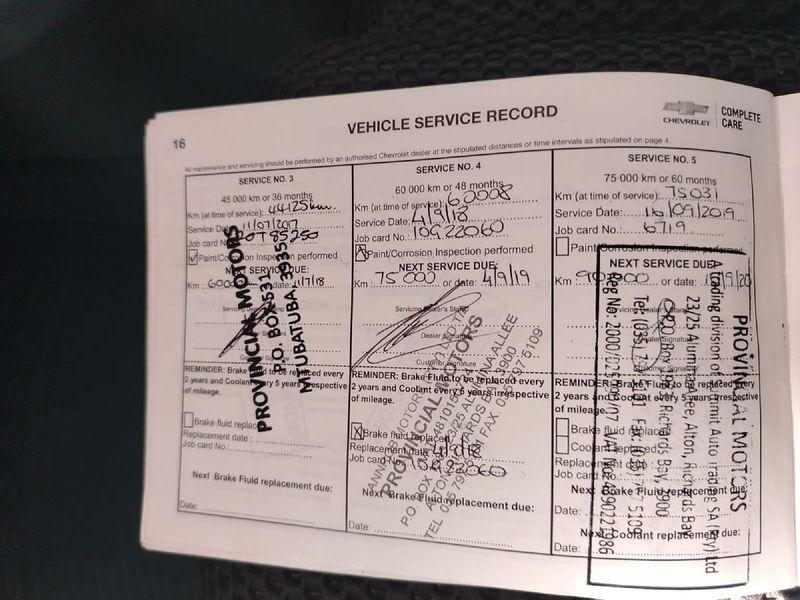 16
VEHICLE SERVICE RECORD
CHEVROLET
COMPLETE
CARE
All maintenance and servicing should be performed by an authorised Chevrolet dealer at the stipulated distances or time intervals as stipulated on page 4.
SERVICE NO. 3
45 000 km or 36 months
Km (at time of service): 44125km
Service Date: 11/07/2017
Job card No:
Paint/Corrosion Inspection performed
NEXT SERVICE DUE:
Km : or date: 11/7/18
REMINDER: Brake Fluid to be replaced every
2 years and Coolant every 5 years irrespective
of mileage.
Brake fluid replaced
Replacement date :
Job card No.:
Next Brake Fluid replacement due:
Date:
PROVINCIAL MOTORS
P.O. BOX 531
MTUBATUBA, 3935
SERVICE NO. 4
60 000 km or 48 months
Km (at time of service): 60008
Service Date: 4/9/18
Job card No: 10G22060
Paint/Corrosion Inspection performed
NEXT SERVICE DUE:
Km : 75000 or date: 4/9/19
Servicing Dealer's Stamp
Dealer Signature
Customer Signature
REMINDER: Brake Fluid to be replaced every
2 years and Coolant every 5 years irrespective
of mileage.
X Brake fluid replaced
Replacement date: 4/9/18
Job card No: 10G22060
Next Brake Fluid replacement due:
Date:
PROVINCIAL MOTORS
SERVICE NO. 5
75 000 km or 60 months
Km (at time of service): 75031
Service Date: 16/09/2019
Job card No: 6719
Paint/Corrosion Inspection performed
NEXT SERVICE DUE
Km : 90000 or date:
REMINDER: Brake Fluid to be replaced every
2 years and Coolant every 5 years irrespective
of mileage.
Brake fluid replaced
Coolant replaced
Replacement date
Job card No
Next Brake Fluid replacement due:
Date:
Next Coolant replacement due:
Date:
PROVINCIAL MOTORS
A trading Division of Summit Auto Trading SA (Pty) Ltd
Alton, Richards Bay
Richards Bay, 3900